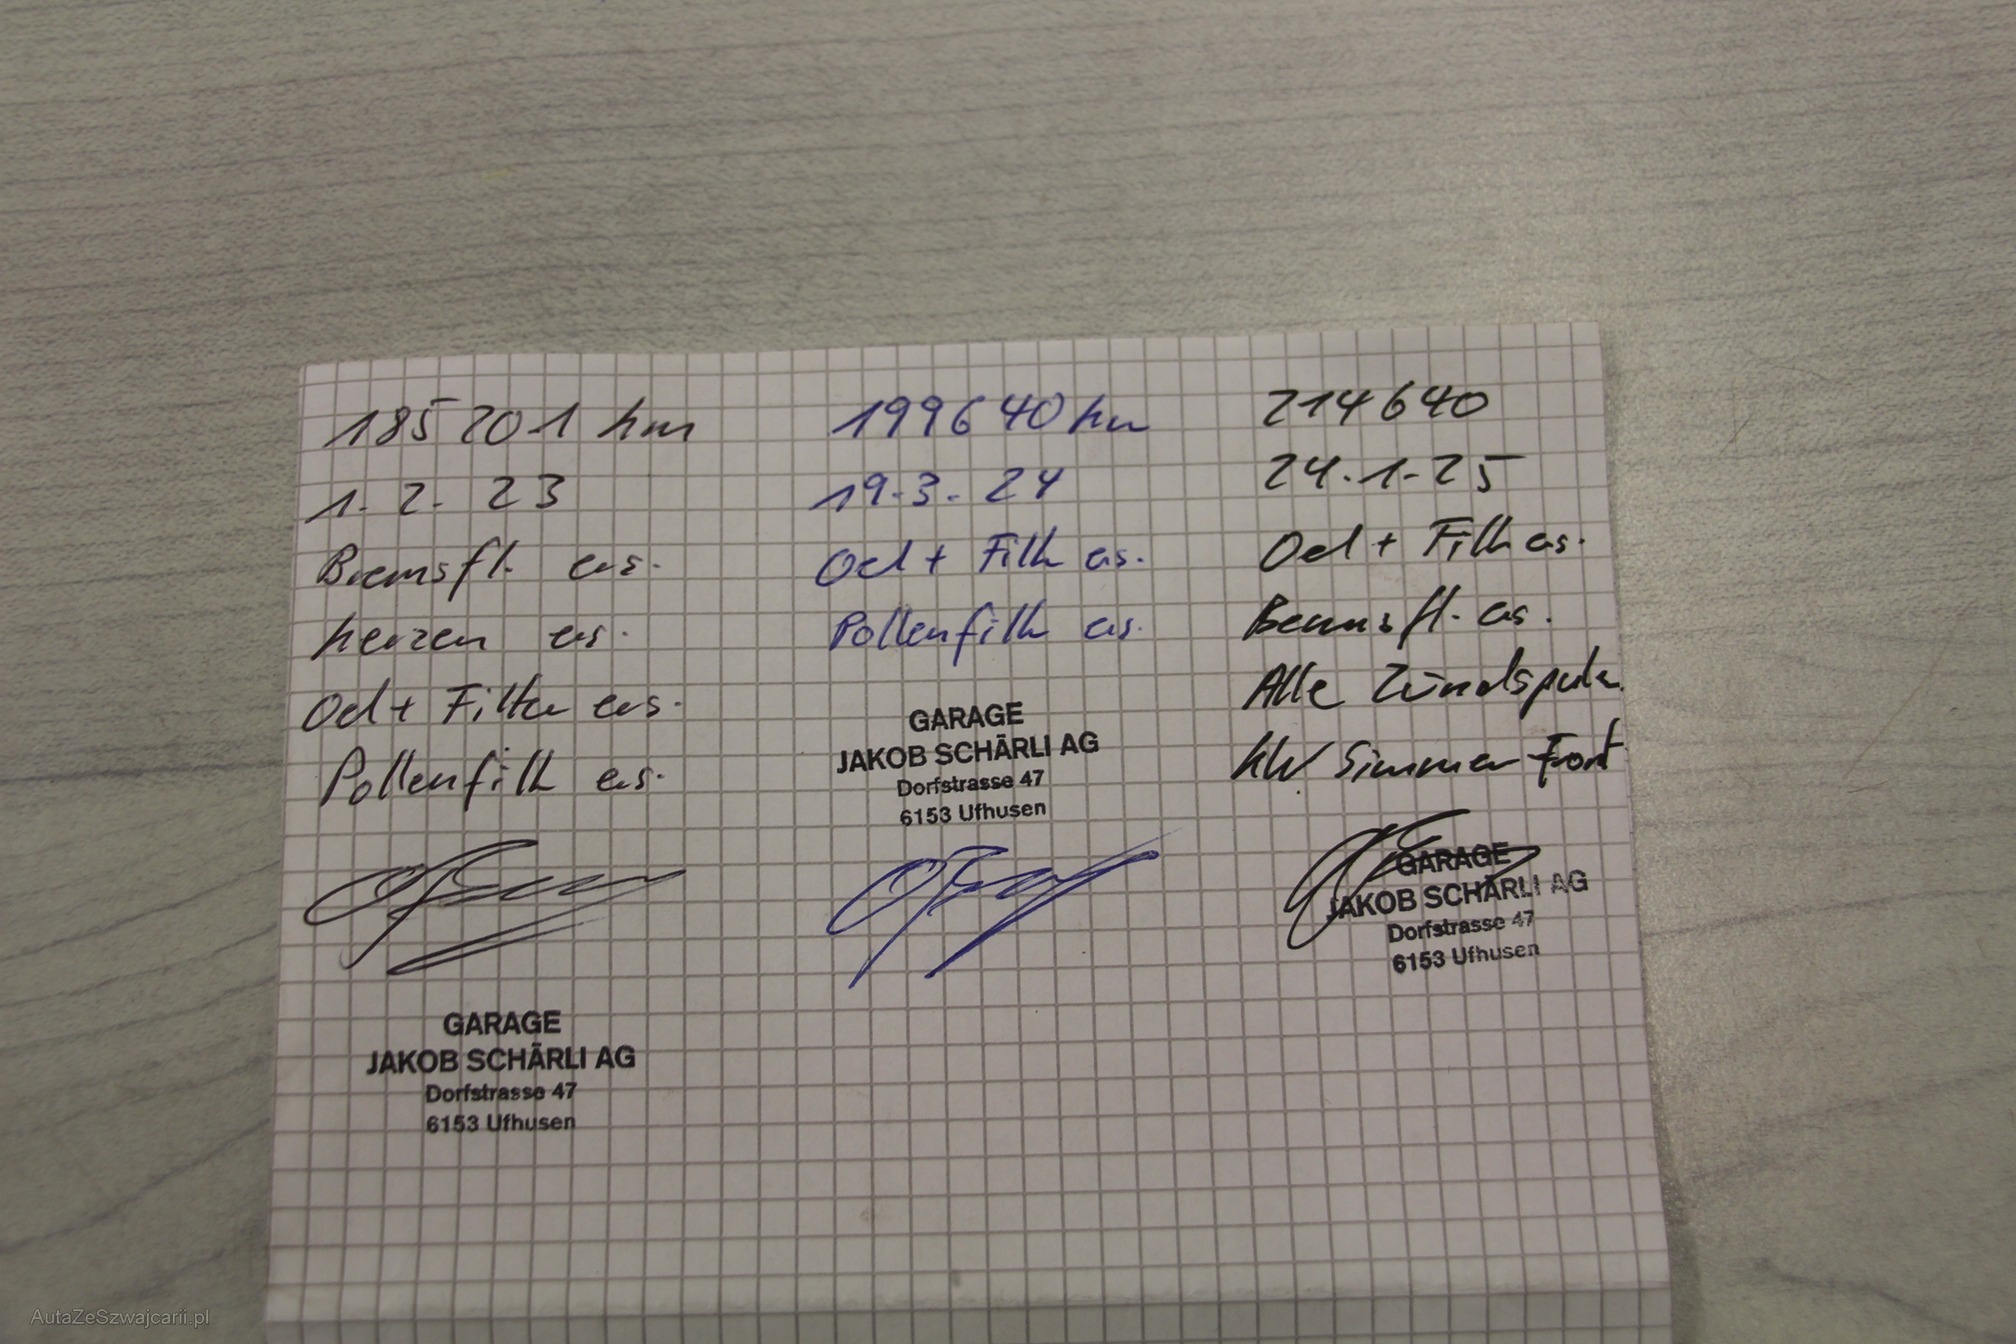 185 201 km
1. 2. 23
Bremsfl. ers.
Kerzen ers.
Oel + Filter ers.
Pollenfilt ers.
GARAGE
JAKOB SCHÄRLI AG
Dorfstrasse 47
6153 Ufhusen
199640 km
19.3.24
Oel + Filt ers.
Pollenfilt ers.
GARAGE
JAKOB SCHÄRLI AG
Dorfstrasse 47
6153 Ufhusen
214640
24.1.25
Oel + Filt ers.
Bremsfl. ers.
Alle Zündspulen
KW Simmer Front
GARAGE
JAKOB SCHÄRLI AG
Dorfstrasse 47
6153 Ufhusen
AutaZeSzwajcarii.pl